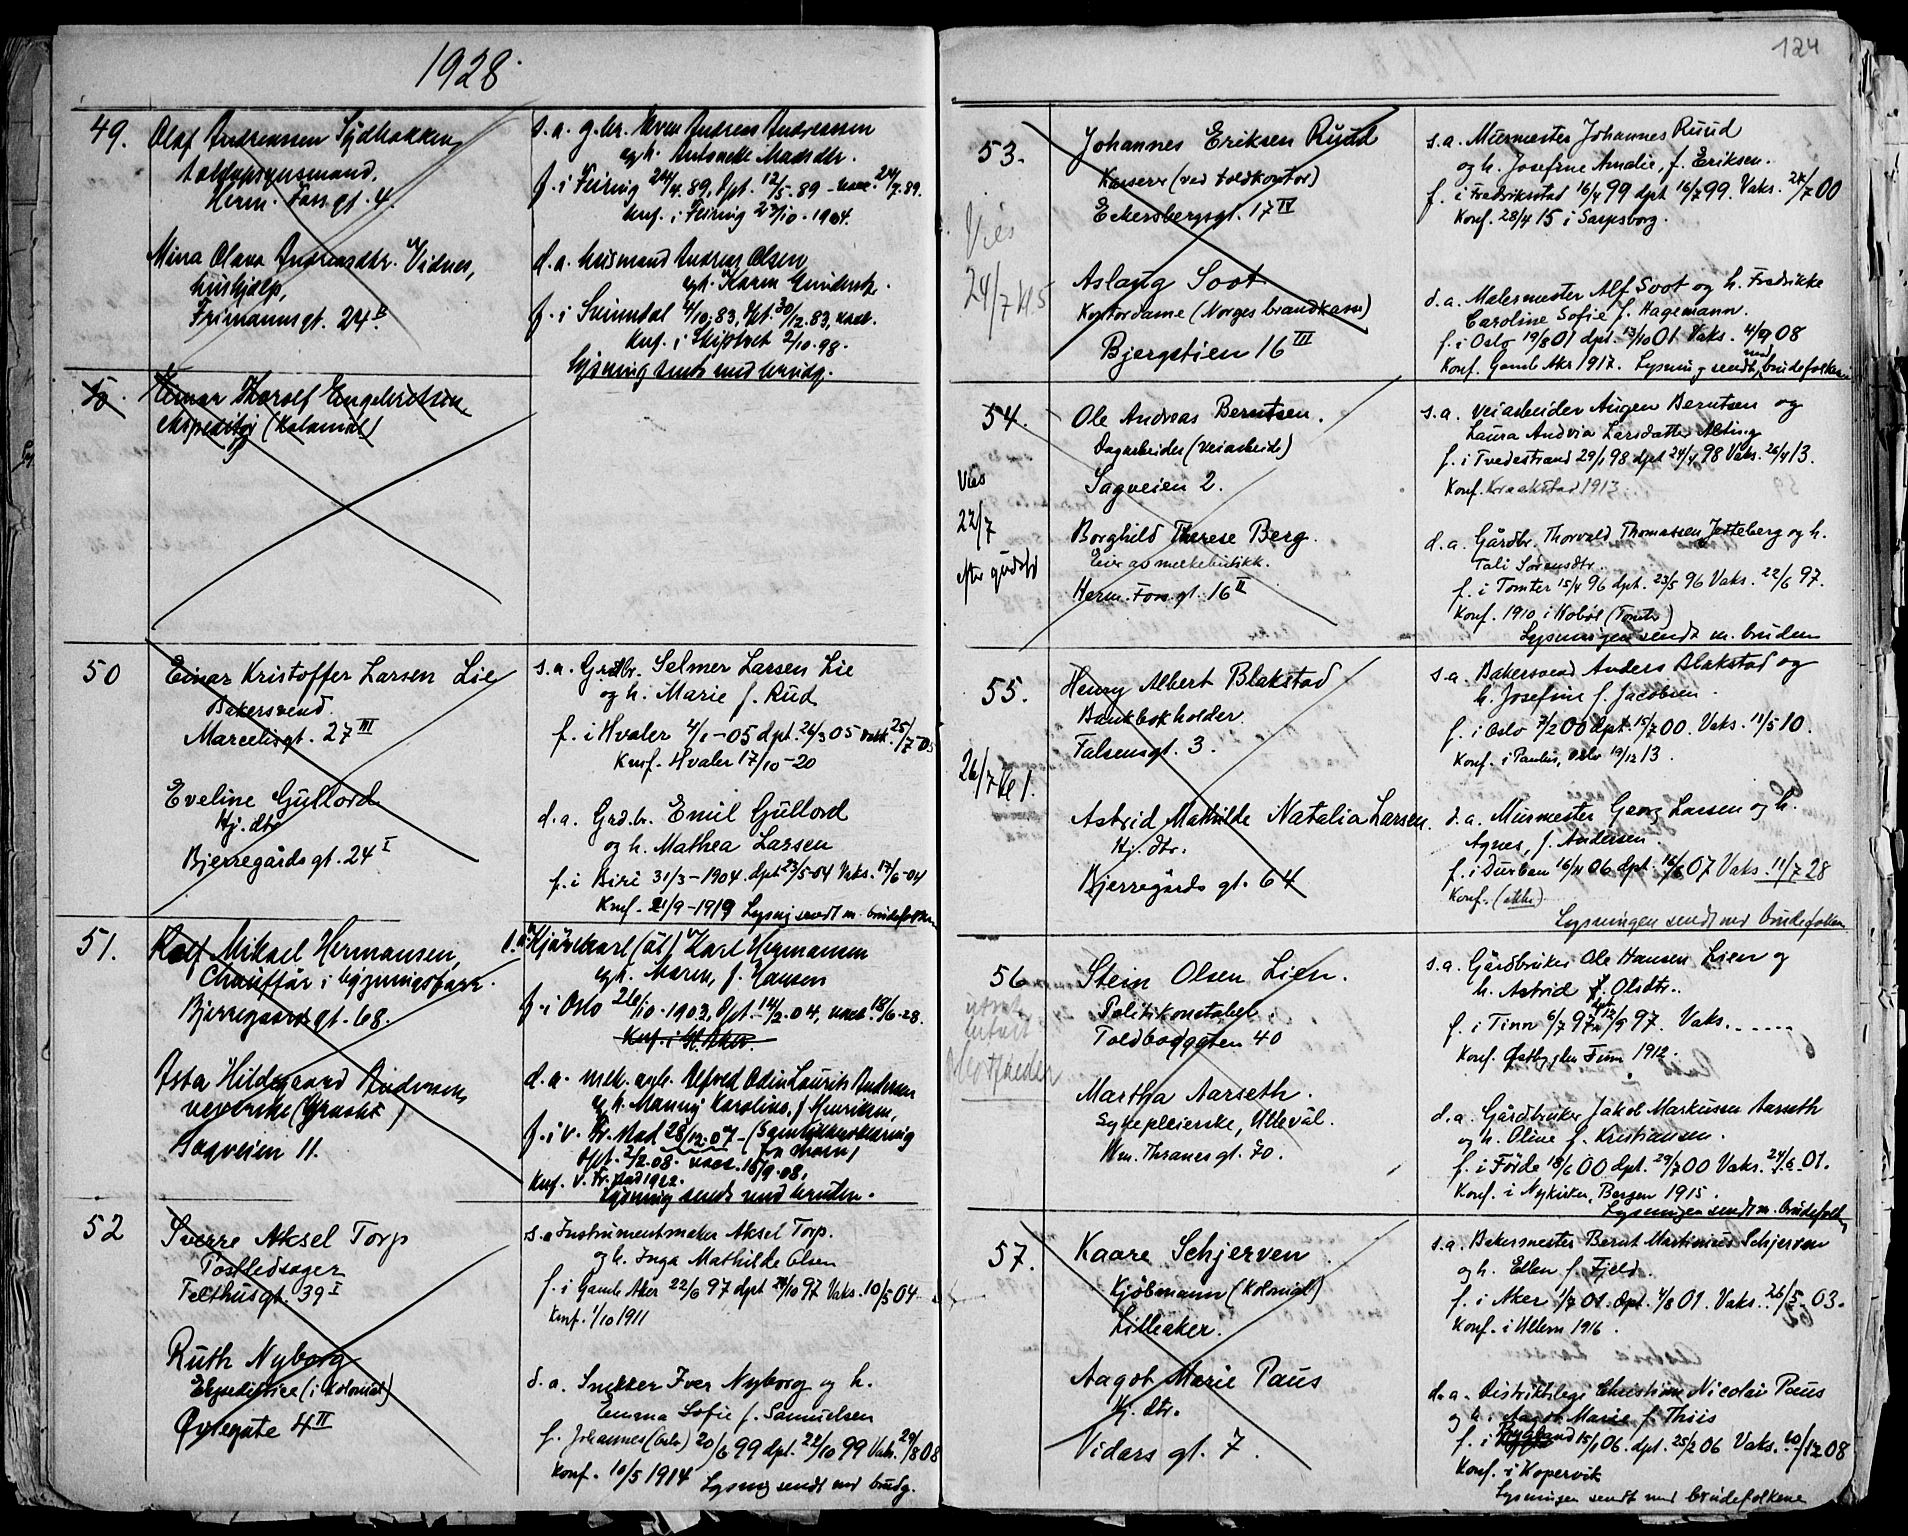 1928.
124
49.
Olaf Andreassen Sydbakken
toldopsynsmand.
Herm. Foss gt. 4.
s.a. g.br. Even Andreas Andreassen
og h. Antonette Madsdtr.
f. i Feiring 24/4.89, dpt. 12/5.89
Knf. i Feiring 23/10-1904.
Mina Olava Andreasdtr. Vidnes,
hushjælp,
Frimannsgt. 24B.
d.a. husmand Andreas Olsen
og h. Karen Gundersdtr.
f. i Svinndal 4/10.83, dpt. 30/12.83, vacc.
Knf. i Skiptvet 2/10.98.
Lysning sendt med brudg.
50
Thoralf Engebretsen
ekspeditør (Kolonial)
50
Einar Kristoffer Larsen Lie
Bakersvend.
Marcelisgt. 27 III
s.a. Grdbr. Selmer Larsen Lie
og h. Marie f. Rud
f. i Hvaler 4/1-05 dpt. 26/3 05 vakt. 25/7-05
Knf. Hvaler 17/10-20
Eveline Gullord
Hj. dtr
Bjerregårdsgt. 24 I
d.a. Grd.br. Emil Gullord
og h. Mathea Larsen
f. i Biri 31/3-1904. dpt 23/5-04 Vaks. 17/6-04
Knf. 21/9-1919 Lysning sendt m. brudefolkene
51.
Rolf Mikael Hermansen,
Chauffør i bygningsforr.
Bjerregaardsgt. 68.
Kjørekarl (át) Karl Hermansen
og h. Maren, f. Hansen
f. i Oslo 26/10-1903, dpt. 14/2.04, vacc. 18/6-28.
Knf. i V. Aker.
Asta Hildegaard Andersen,
veverske (Graah
Sagveien 11.
d.a. mek. arb. Alfred Odin Laurits Andersen
og h. Manny Karoline, f Henriksen,
f. i V. Fr.stad 28/12.07 - (Samtykkeerklæring
fra moren)
dpt. 2/2.08. vacc. 15/9.08,
Knf. V. Fr.stad 1922.
Lysning sendt med bruden.
52
Sverre Aksel Torp
Postledsager
Felthusgt. 39 I
s.a. Instrumentmaker Aksel Torp.
og h. Inga Mathilde Olsen
f. i Gamle Aker 22/6 97 dpt 24/10 97 Vaks. 10/5 04
Knf. 1/10 1911
Ruth Nyborg
Ekspeditrice (i Kolonial)
Øvregate 4 II
d.a. Snekker Iver Nyborg og h.
Emma Sofie f. Samuelsen
f. Johannes (Oslo) 20/6 99 dpt. 22/10 99 Vaks. 29/8 08
Konf. 10/5 1914 Lysning sendt med brudg.
53.
Vies
24/7 kl 5
Johannes Eriksen Ruud
Kasserer (ved toldkontor)
Eckersbergsgt. 17 IV
s.a. Murmester Johannes Ruud
og h. Josefine Amalie, f. Eriksen.
f. i Fredrikstad 16/4 99 dpt 16/7 99. Vaks. 24/7 00
Konf. 28/4 15 i Sarpsborg.
Aslaug Soot
Kontordame (Norges brandkasse)
Bjergstien 16 III
d.a. Malermester Alf Soot og h. Fredrikke
Caroline Sofie f. Hagemann.
f. i Oslo 19/8 01 dpt. 13/10 01 Vaks. 4/9 08
Konf. Gamle Aker 1917. Lysning sendt med brudefolkene
54.
Vies
22/7
efter gudstj
Ole Andreas Berntsen.
Dagarbeider (veiarbeide)
Sagveien 2.
s.a. veiarbeider Augen Berntsen og
Laura Andvia Larsdatter
f. i Tvedestrand 29/1 98 dpt 24/4 98 Vaks. 26/4 13.
Konf. Kraakstad 1913.
Borghild Therese Berg.
Eier av melkebutikk.
Herm. Foss gt. 16 II
d.a. Gårdbr. Thorvald Thomassen Jetteberg og h.
Tali Sørensdtr.
f. i Tomter 15/4 96 dpt. 25/5 96 Vaks. 22/6 97.
Konf. 1910 i Hobøl (Tomter)
Lysningen sendt m. bruden
55.
26/7 kl 1.
Henry Albert Blakstad
Bankbokholder.
Falsensgt. 3.
s.a. Bakersvend Anders Blakstad og
h. Josefine f. Jacobsen.
f. i Oslo 7/2 00 dpt. 15/7 00. Vaks. 11/5 10.
Konf. i Paulus, Oslo 19/12 13.
Astrid Mathilde Natalia Larsen.
Hj. dtr.
Bjerregårds gt. 64
d.a. Murmester Georg Larsen og h.
Agnes, f. Andersen.
f. i Durban 16/4 06 dpt. 16/6 07 Vaks. 11/7 28
Konf. (ikke)
Lysningen sendt med brudefolkene
56
Stein Olsen Lien.
Politikonstabel.
Toldbodgaten 40
s.a. Gårdbruker Ole Hansen Lien og
h. Astrid f. Olsdtr.
f. i Tinn 6/7 97 dpt. 12/9 97. Vaks. -----
Konf. Østbygden Tinn 1912.
Martha Aarseth.
Sykepleierske, Ullevål.
Wm. Thranes gt. 70.
d.a. Gårdbruker Jakob Markussen Aarseth
og h. Oline f. Kristiansen.
f. i Førde 18/6 00 dpt. 29/7 00 Vaks. 24/6 01.
Konf. i Nykirken, Bergen 1915.
Lysningen sendt m. brudefolkene
57.
Kaare Schjerven
Kjøbmann (Kolonial)
Lilleaker.
s.a. Bakermester Bernt Martinius Schjerven
og h. Ellen f. Fjeld.
f. i Aker 1/7 01. dpt. 4/8 01. Vaks. 26/5-03.
Konf. i Ullern 1916.
Aagot Marie Paus
Hj. dtr.
Vidars gt. 7.
d.a. Distriktslege Christian Nicolai Paus
og h. Aagot Marie f. Thiis
f. i Bygland 15/1 06. dpt. 25/2 06 Vaks. 10/12 08
Konf. i Kopervik
Lysningen sendt med brudefolkene